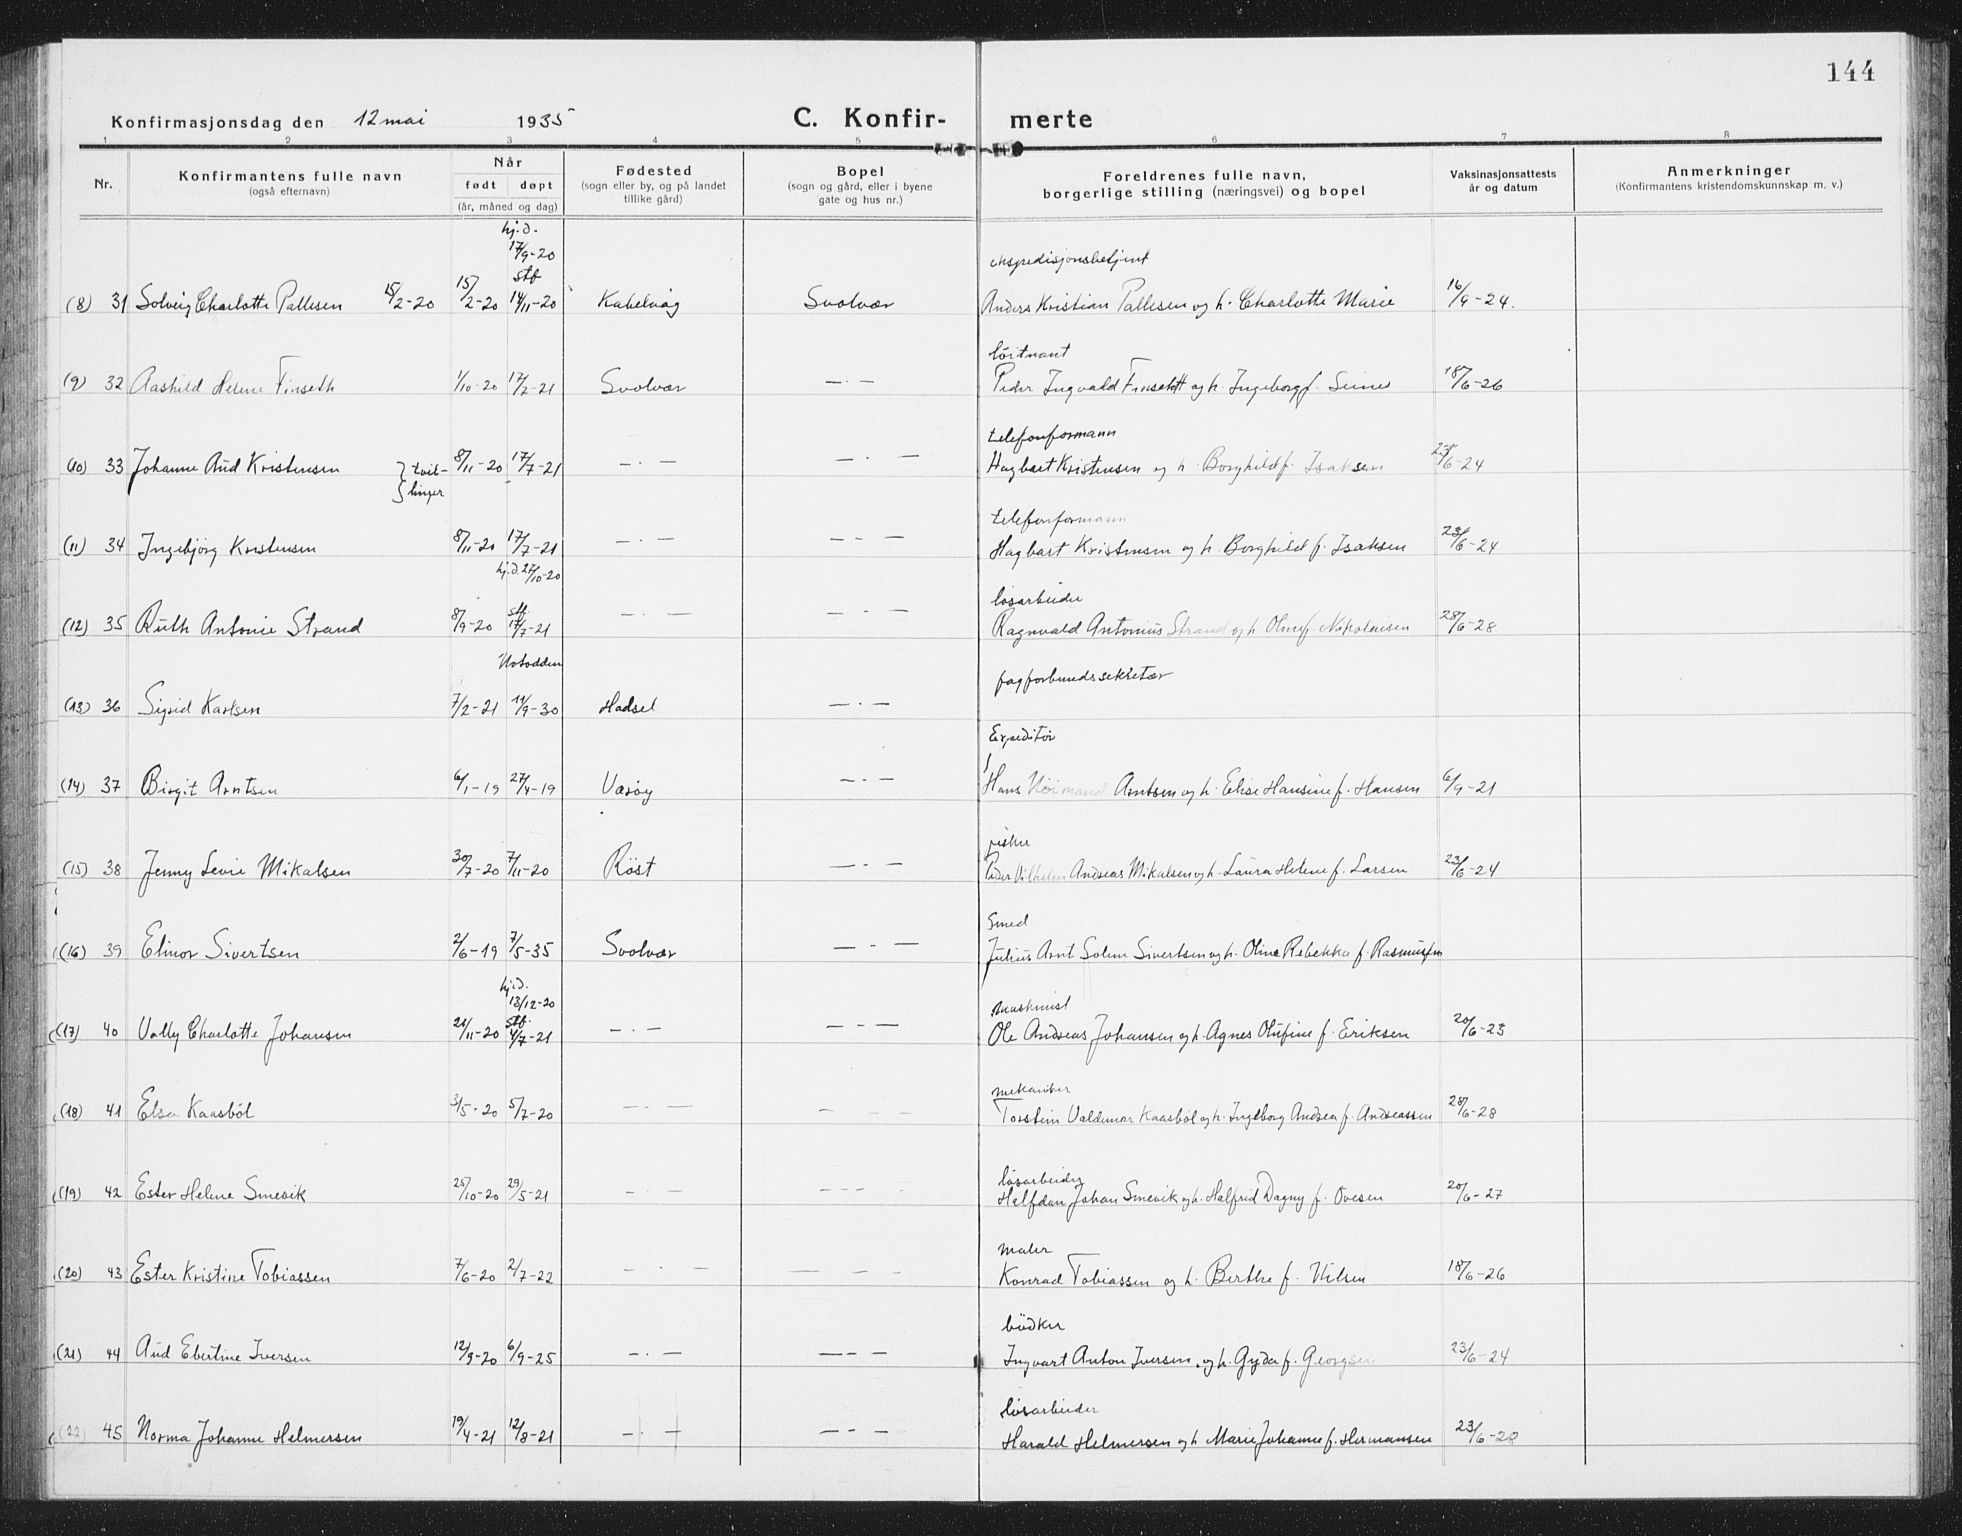 144
Konfirmasjonsdag den 12 mai 1935 C. Konfir- merte
1 2 3 4 5 6 7 8
Nr. Konfirmantens fulle navn (også efternavn) Når født døpt (år, måned og dag) Fødested (sogn eller by, og på landet tillike gård) Bopel (sogn og gård, eller i byene gate og hus nr.) Foreldrenes fulle navn, borgerlige stilling (næringsvei) og bopel Vaksinasjonsattests år og datum Anmerkninger (Konfirmantens kristendomskunnskap m. v.)
hj.d. 17/9-20 stf ekspedisjonsbetjent
(8) 31 Solveig Charlotte Pallesen 15/2-20 15/2-20 14/11-20 Kabelvåg Svolvær Anders Kristian Pallesen og h. Charlotte Marie 16/9-24.
løitnant
(9) 32 Aashild Helene Finseth 1/10-20 17/7-21 Svolvær — · — Peder Ingvald Finseth og h. Ingeborg f. 18/6-26
telefonformann
(10) 33 Johanne Aud Kristensen } tvil- 8/11-20 17/7-21 — · — — · — Hagbart Kristensen og h. Borghild f. Isaksen 23/6-24
} linger
telefonformann
(11) 34 Ingebjörg Kristensen 8/11-20 17/7-21 — · — — · — Hagbart Kristensen og h. Borghild f. Isaksen 23/6-24
hj.d. 27/10-20
løsarbeider
(12) 35 Ruth Antonie Strand 8/9-20 stf 17/7-21 — · — — · — Ragnvald Antonius Strand og h. Oline f. Nikolaisen 28/6-28
Notodden fagforbundssekretær
(13) 36 Sigrid Karlsen 7/2-21 11/9-30 Hadsel — · —
Expeditör
(14) 37 Birgit Arntsen 6/1-19 27/4-19 Værøy — · — Hans Normand Arntsen og h. Elise Hansine f. Hansen 6/9-21
fisker
(15) 38 Jenny Levie Mikalsen 30/7-20 7/11-20 Röst — · — Peder Vilhelm Andreas Mikalsen og h. Laura Helene f. Larsen 23/6-24
Smed
(16) 39 Elinor Sivertsen 2/6-19 7/5-35 Svolvær — · — Julius Arnt Solem Sivertsen og h. Oline Rebekka f. Rasmussen
hj.d. 13/12-20 maskinist
(17) 40 Vally Charlotte Johansen 21/11-20 stf. 4/7-21 — · — — · — Ole Andreas Johansen og h. Agnes Olufine f. Eriksen 20/6-23
mekaniker
(18) 41 Elsa Kaasböl 3/5-20 5/7-20 — · — — — — Torstein Valdemar Kaasböl og h. Ingeborg Andrea f. Andreassen 28/6-28
løsarbeider
(19) 42 Ester Helene Smevik 25/10-20 29/5-21 — · — — — — Helfdan Johan Smevik og h. Halfrid Dagny f. Ovesen 20/6-27
maler
(20) 43 Ester Kristine Tobiassen 7/6-20 2/7-22 — · — — — — Konrad Tobiassen og h. Berthe f. Nilsen 18/6-26
bödker
(21) 44 Aud Ebertine Iversen 12/9-20 6/9-25 — · — — — — Ingvart Anton Iversen og h. Gyda f. Georgsen 23/6-24
løsarbeider
(22) 45 Norma Johanne Helmersen 19/4-21 12/8-21 — · — — — — Harald Helmersen og h. Marie Johanne f. Hermansen 23/6-28